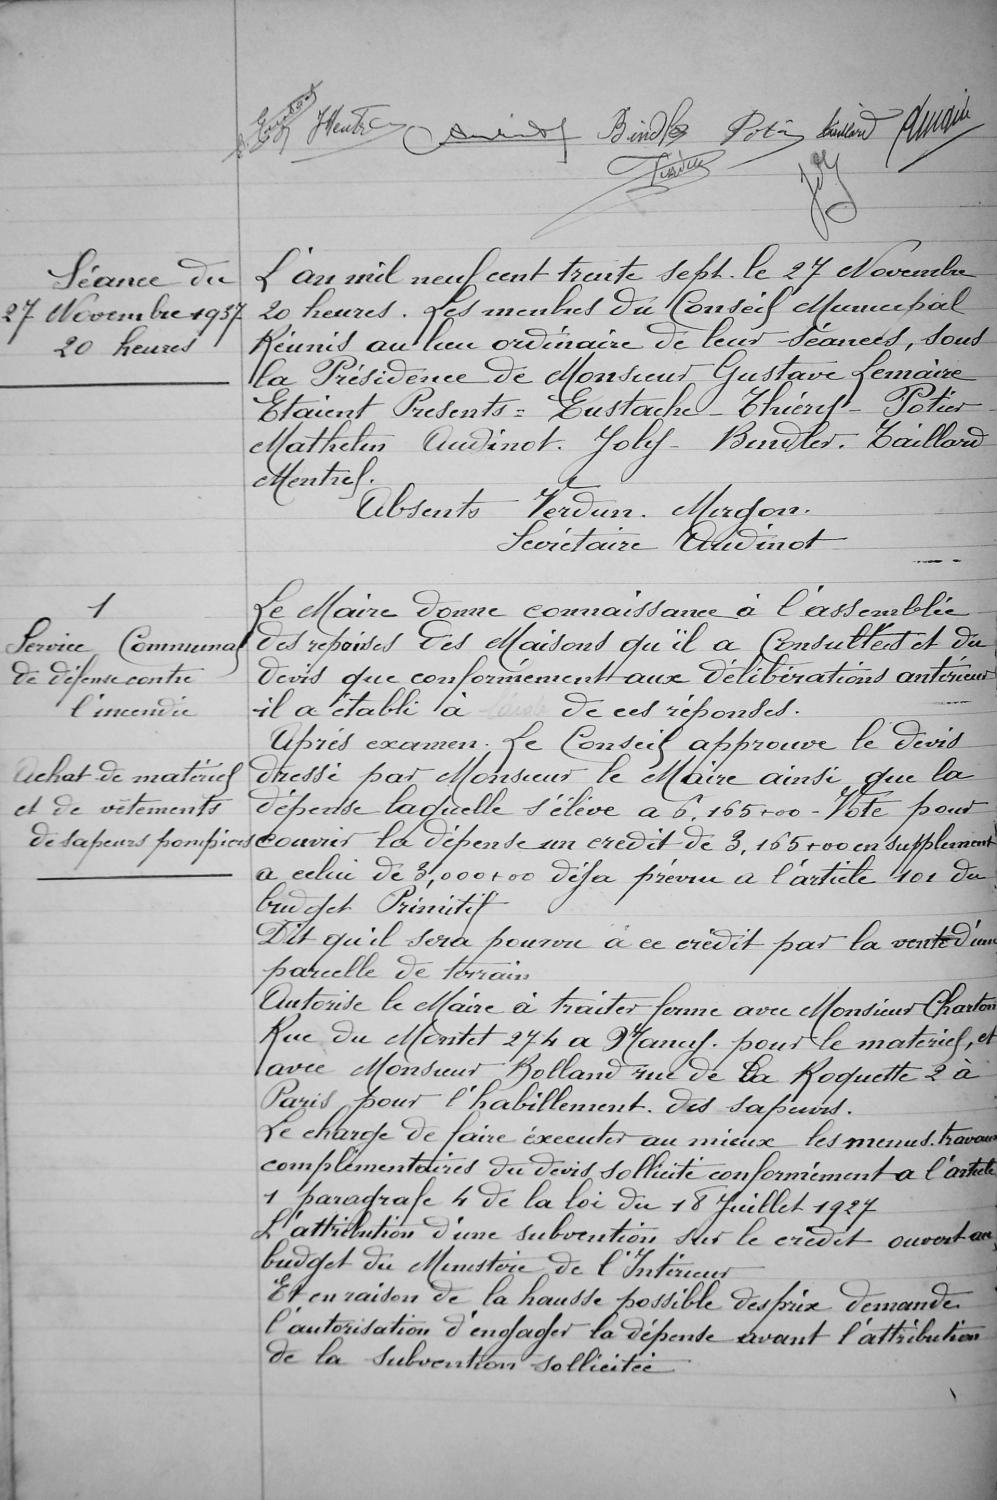 Bindler Potier Taillard Lemaire
Joly
Séance du
27 Novembre 1937
20 heures
L'an mil neuf cent trente sept. le 27 Novembre
20 heures. Les membres du Conseil Municipal
Réunis au lieu ordinaire de leur séances, sous
la Présidence de Monsieur Gustave Lemaire
Etaient Presents = Eustache - Thiéry - Potier -
Mathelin Audinot. Joly - Bindler. Taillard
Mentrel.
Absents Verdun. Morgon.
Secrétaire Audinot
1
Service Communal
de défense contre
l'incendie
Achat de matériel
et de vêtements
de sapeurs pompiers
Le Maire donne connaissance à l'assemblée
des reponses des Maisons qu'il a Consultées et du
devis que conformément aux délibérations antérieur
il a établi à l'aide de ces réponses.
Après examen. Le Conseil approuve le devis
dressé par Monsieur le Maire ainsi que la
dépense laquelle s'élève a 6,165+00 - Vote pour
couvrir la dépense un credit de 3,165+00 en supplément
a celui de 3,000+00 déja prévu a l'article 101 du
budget Primitif
Dit qu'il sera pourvu à ce crédit par la vente d'une
parcelle de terrain
Autorise le Maire à traiter ferme avec Monsieur Charton
Rue du Montet 274 a Nancy. pour le matériel, et
avec Monsieur Rolland rue de La Roquette 2 à
Paris pour l'habillement. des sapeurs.
Le charge de faire éxecuter au mieux les menus. travaux
complémentaires du devis sollicite conformément a l'article
1 paragrafe 4 de la loi du 18 Juillet 1927
L'attribution d'une subvention sur le crédit ouvert au
budget du Ministère de l'Intérieur
Et en raison de la hausse possible des prix demande
l'autorisation d'engager la dépense avant l'attribution
de la subvention sollicitée